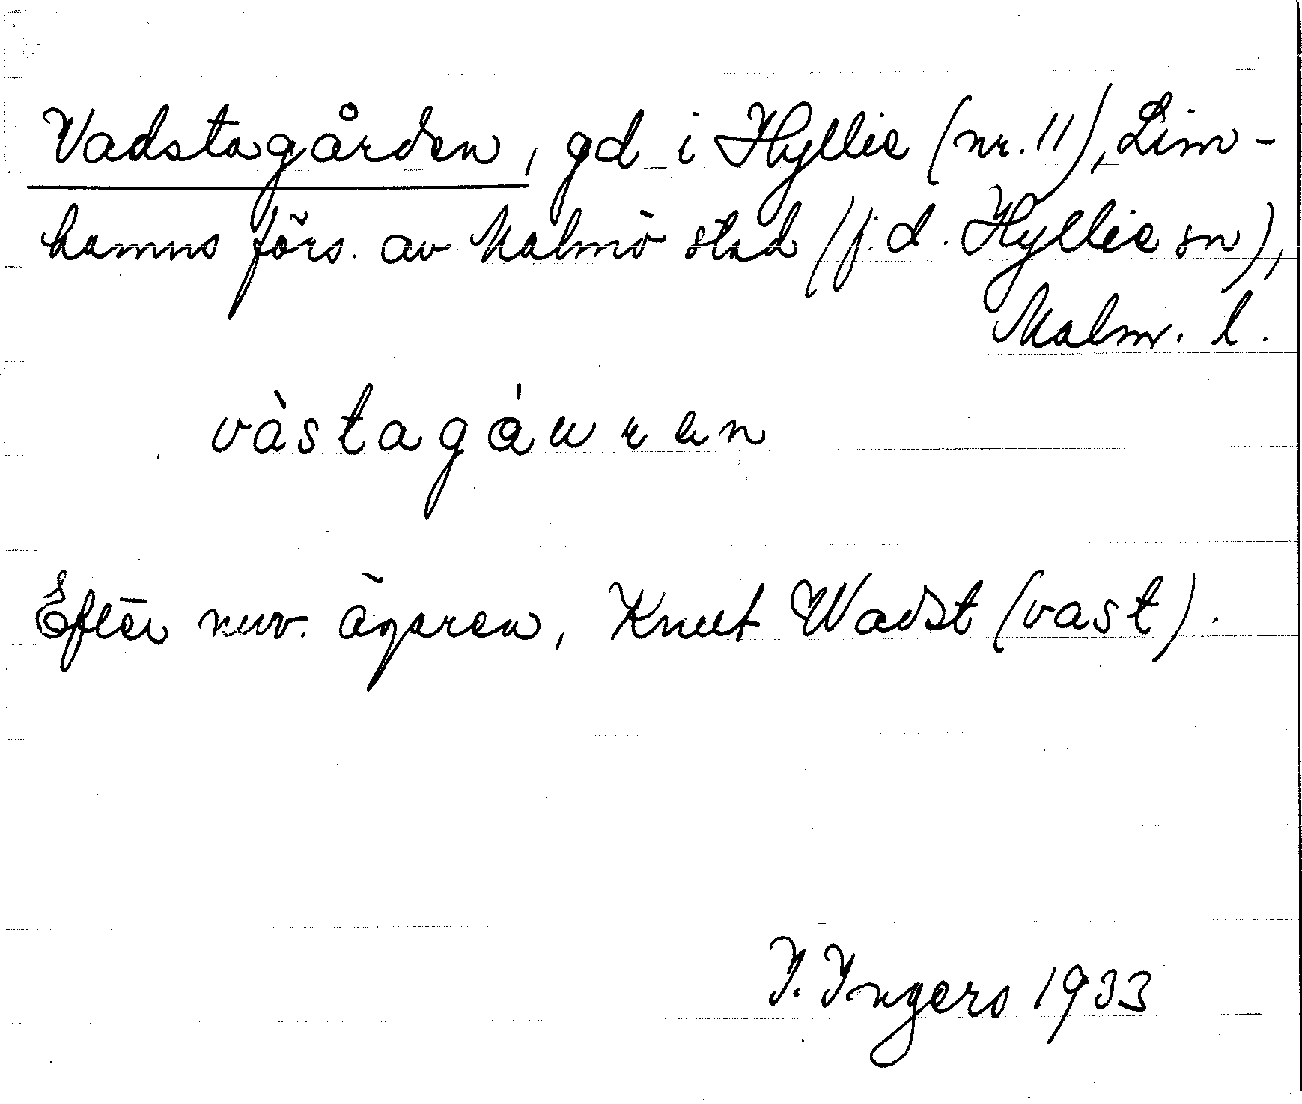 Vadstagården, gd i Hyllie (nr. 11), Lim-
hamns förs. av Malmö stad (f. d. Hyllie sn),
Malm. l.
vàstagáuren
Efter nuv. ägaren, Knut Wadst (vast).
I. Ingers 1933